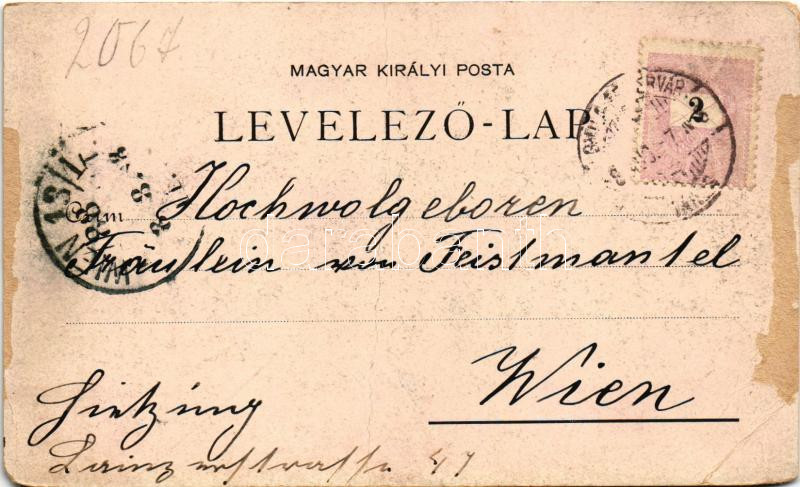 2067
MAGYAR KIRÁLYI POSTA
LEVELEZŐ-LAP
2
WIEN 13/1
Hochwolgeboren
Fräulein von Feistmantel
Wien
Hietzing
Lainzerstrasse 47